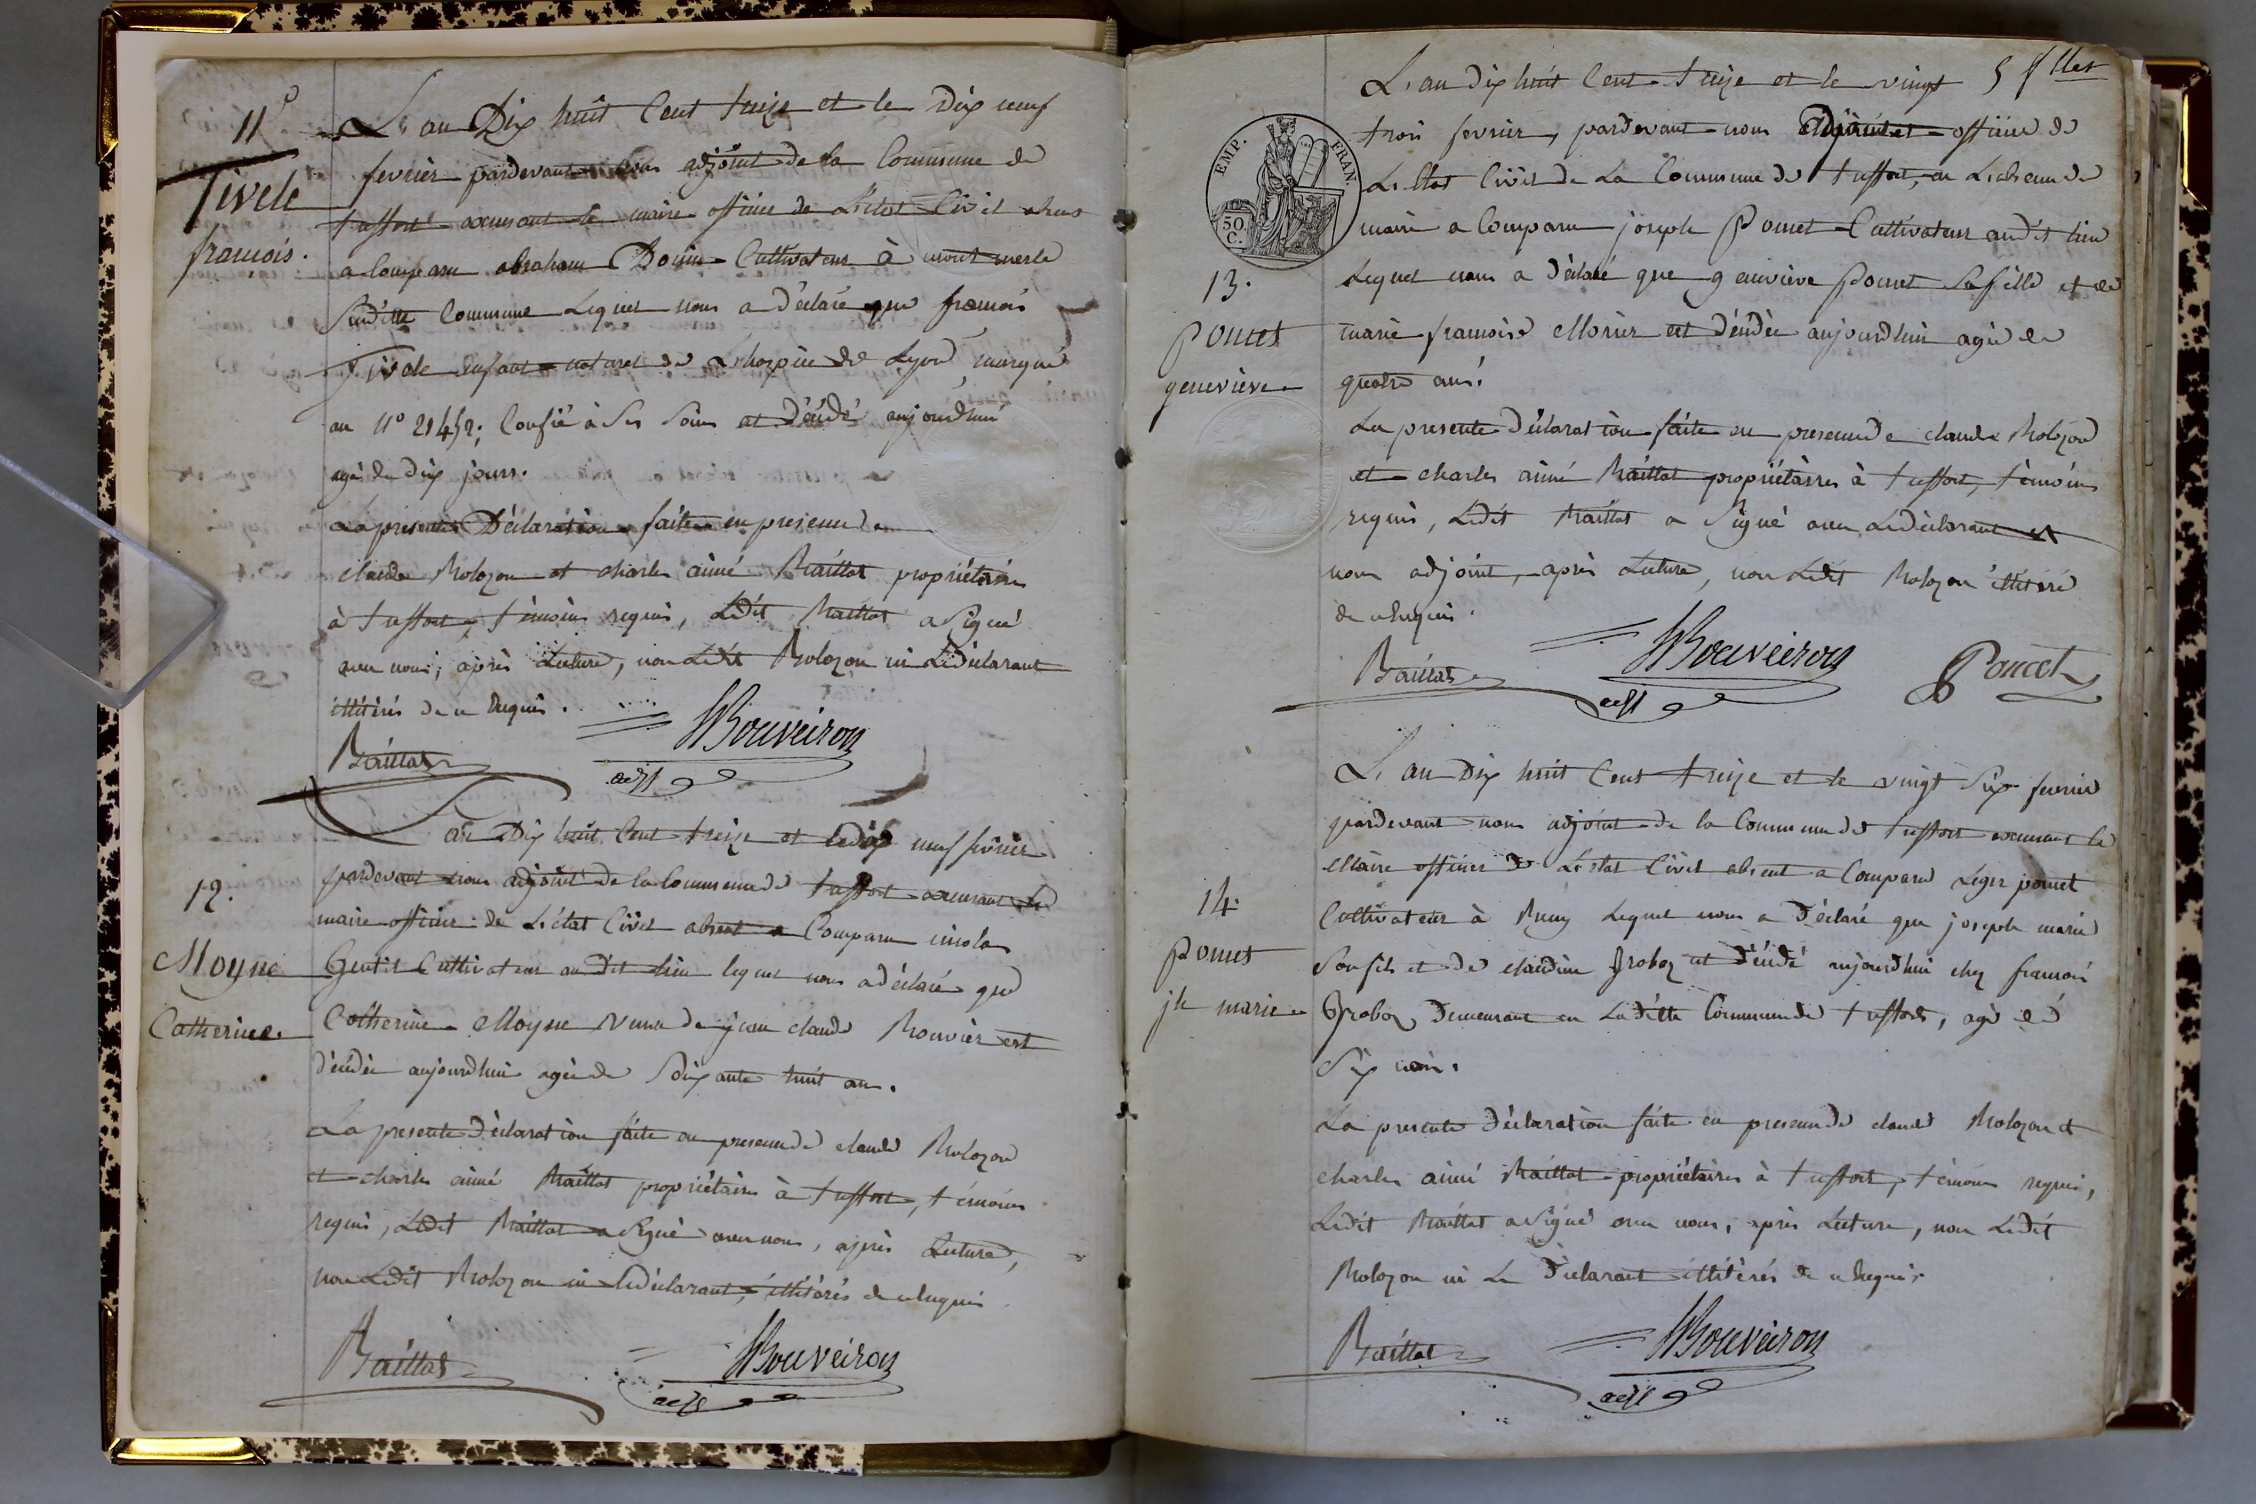 11e
Tivele
francois.
L'an Dix huit Cent treize et le Dix neuf
fevrier pardevant nous adjoint de la Commune de
treffort exercant le maire officier de L'etat Civil absent
a Comparu abraham Donin Cultivateur à mont merle
Susditte Commune Lequel nous a déclaré que francois
Tivole enfant naturel de L'hospice de Lyon marqué
au n° 21452; Confié à Ses Soins est décédé aujourdhui
agé de dix jours.
La presente Déclaration faite en presence de
claude Rolozon et charles aimé Maillat propriétaires
à treffort, témoins requis, Ledit Maillat a Signé
avec nous, après Lecture, non Ledit Rolozon ni Ledéclarant
illitérés de ce Requis.
Maillat HBouveiron
adjt
L'an Dix huit Cent treize et ledix neuf fevrier
pardevant nous adjoint de la Commune de treffort exercant le
12.
maire officier de L'état Civil absent a Comparu nicolas
Moyne
Gentil Cultivateur au dit lieu lequel nous a déclaré que
Catherine.
Catherine Moyne Veuve de jean claude Rouvier est
décédée aujourdhui agée de Soixante huit ans.
La presente déclaration faite en presence de claude Rolozon
et charles aimé Maillat propriétaires à treffort, témoins
requis, Ledit Maillat a Signé avec nous, après Lecture,
non Ledit Rolozon ni Ledéclarant, illitérés de ce Requis
Maillat HBouveiron
adjt
5 fllet
L'an dix huit Cent treize et le vingt
EMP. FRAN.
50 C.
trois fevrier, pardevant nous officier de
L'Etat Civil de La Commune de treffort, en L'absence de
maire a Comparu joseph Poncet Cultivateur audit lieu
13.
Lequel nous a déclaré que genviève Poncet Sa fille et de
Poncet
genevieve
marie francoise Morier est décédée aujourdhui agée de
quatre ans.
La presente déclaration faite en presence de claude Rolozon
et charles aimé Maillat propriétaires à treffort, témoins
requis, Ledit Maillat a Signé avec Ledéclarant et
nous adjoint, après Lecture, non Ledit Rolozon illitéré
de ce Requis.
Maillat HBouveiron Poncet
adjt
L'an Dix huit Cent treize et le vingt Six fevrier
pardevant nous adjoint de la Commune de treffort exercant le
Maire officier de L'Etat Civil absent a Comparu Leger poncet
14.
Cultivateur à Lequel nous a déclaré que joseph marie
Poncet
Son fils et de claudine Broboz est décédé aujourdhui chez francois
jh marie
Broboz Demeurant en La ditte Commune de treffort, agé de
Six mois.
La presente déclaration faite en presence de claude Rolozon et
charles aimé Maillat propriétaires à treffort, témoins requis,
Ledit Maillat a Signé avec nous, après Lecture, non Ledit
Rolozon ni Le Déclarant illitérés de ce Requis.
Maillat HBouveiron
adjt